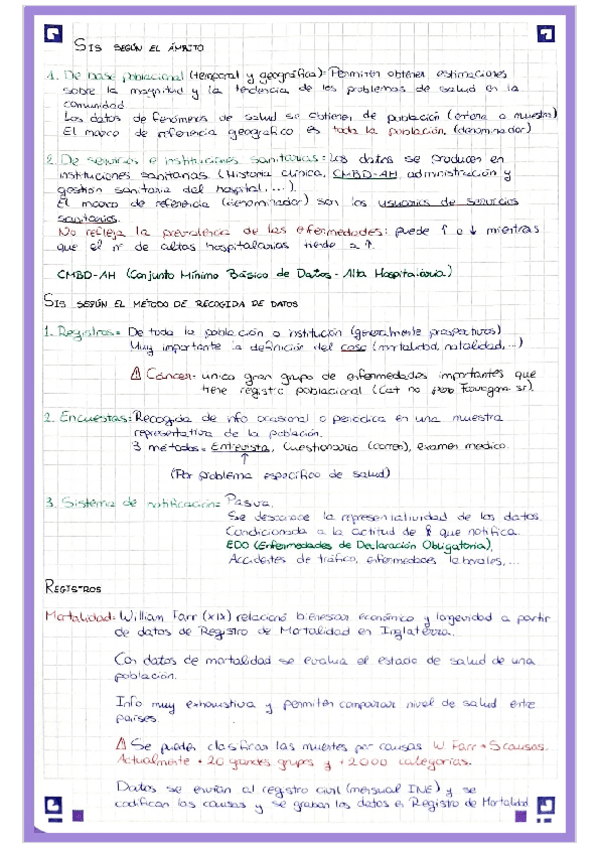 SIS SEGÚN EL ÁMBITO
1. De base poblacional (temporal y geográfica): Permiten obtener estimaciones
sobre la magnitud y la tendencia de los problemas de salud en la
comunidad
Los datos de fenómenos de salud se obtienen de población (entera o muestra)
El marco de referencia geográfico es toda la población, (denominador)
2. De servicios e instituciones sanitarias: Los datos se producen en
instituciones sanitarias (Historia clínica, CMBD-AH, administración y
gestión sanitaria del hospital, ...).
El marco de referencia (denominador) son los usuarios de servicios
sanitarios.
No refleja la prevalencia de las enfermedades: puede ↑ o ↓ mientras
que el nº de altas hospitalarias tiende a ↑.
CMBD-AH (Conjunto Mínimo Básico de Datos - Alta Hospitalaria)
SIS SEGÚN EL MÉTODO DE RECOGIDA DE DATOS
1. Registros: De toda la población o institución (generalmente prospectivos)
Muy importante la definición del caso (mortalidad, natalidad, ...)
⚠ Cáncer: único gran grupo de enfermedades importantes que
tiene registro poblacional (Cat no pero Tarragona sí).
2. Encuestas: Recogida de info ocasional o periódica en una muestra
representativa de la población.
3 métodos: Entrevista, Cuestionario (correo), examen médico.
↑
(Por problema específico de salud)
3. Sistema de notificación: Pasiva.
Se desconoce la representatividad de los datos.
Condicionada a la actitud de q notifica.
EDO (Enfermedades de Declaración Obligatoria),
Accidentes de tráfico, enfermedades laborales, ...
REGISTROS
Mortalidad: William Farr (XIX) relacionó bienestar económico y longevidad a partir
de datos de Registro de Mortalidad en Inglaterra.
Con datos de mortalidad se evalúa el estado de salud de una
población.
Info muy exhaustiva y permiten comparar nivel de salud entre
países.
⚠ Se pueden clasificar las muertes por causas W. Farr → 5 causas.
Actualmente + 20 grandes grupos y +2000 categorías.
Datos se envían al registro civil (mensual INE) y se
codifican las causas y se graban los datos en Registro de Mortalidad